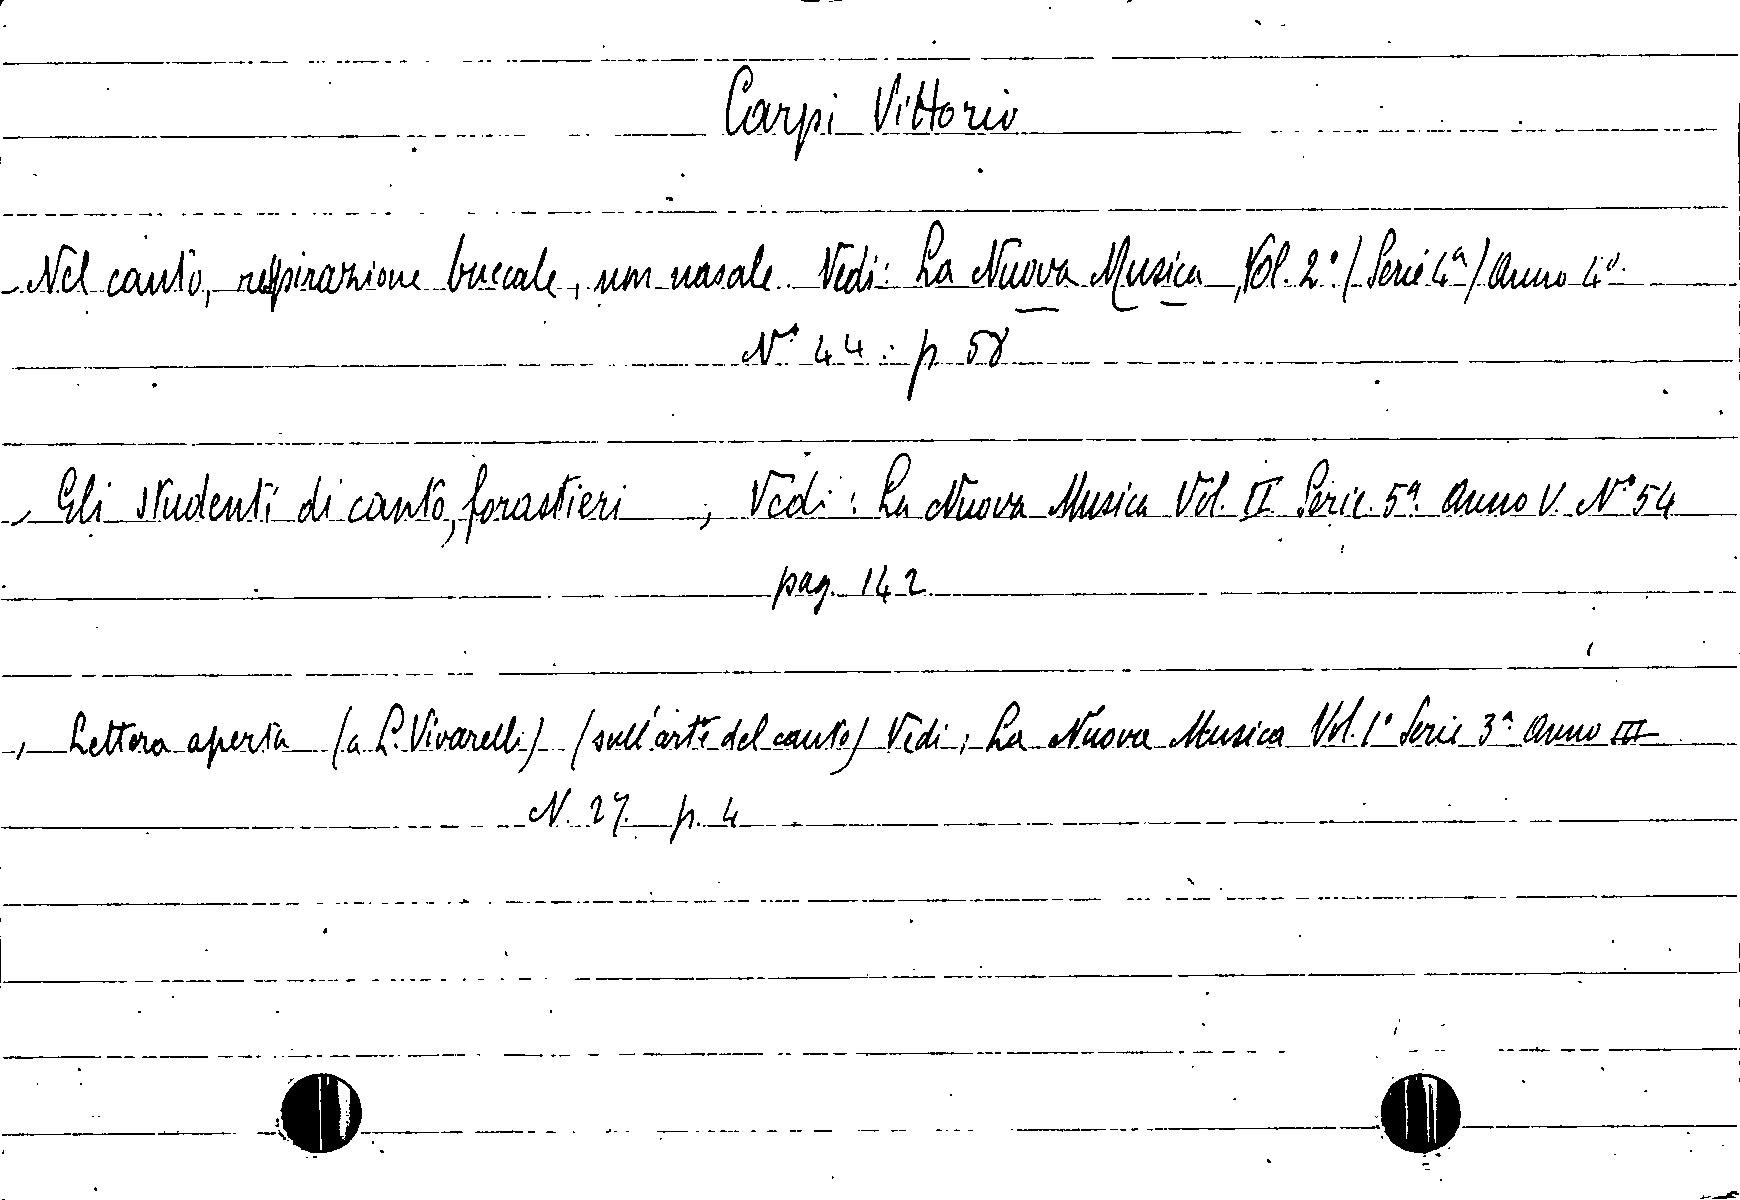 Carpi Vittorio
- Nel canto, respirazione buccale, non nasale. Vedi: La Nuova Musica, Vol. 2º. / Serie 4ª / Anno 4º.
Nº 44 : p 58
- Gli studenti di canto, forastieri, Vedi: La Nuova Musica Vol. II Serie. 5ª. Anno V. Nº 54
pag. 142
- Lettera aperta (a L. Vivarelli) (sull'arte del canto) Vedi: La Nuova Musica Vol. 1º Serie 3ª Anno III
N. 27. p. 4